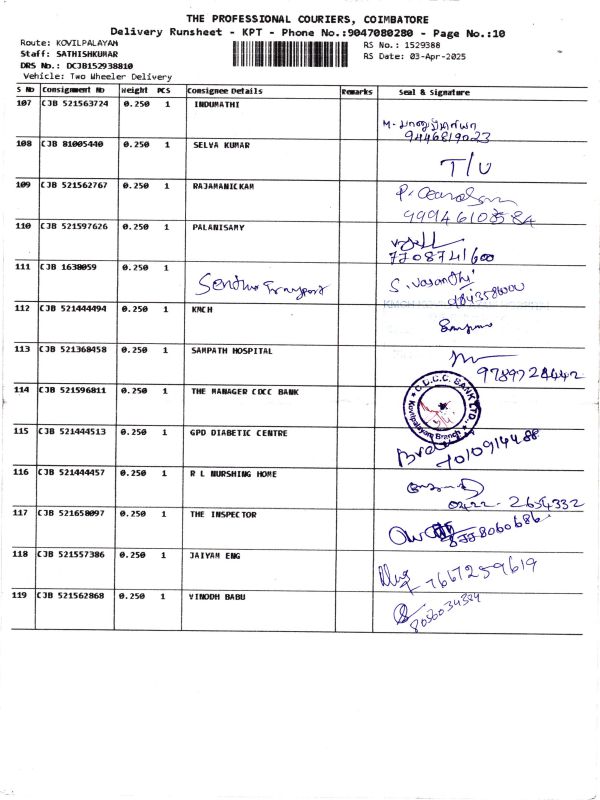 THE PROFESSIONAL COURIERS, COIMBATORE
Delivery Runsheet - KPT - Phone No.:9047080280 - Page No.:10
Route: KOVILPALAYAM
Staff: SATHISHKUMAR
DRS No.: DCJB152938810
Vehicle: Two Wheeler Delivery
RS No.: 1529388
RS Date: 03-Apr-2025
S No Consignment No Weight PCS Consignee Details Remarks Seal & Signature
107 CJB 521563724 0.250 1 INDUMATHI
9446819023
108 CJB 81005440 0.250 1 SELVA KUMAR
T/U
109 CJB 521562767 0.250 1 RAJAMANICKAM
110 CJB 521597626 0.250 1 PALANISAMY
7708741600
111 CJB 1638059 0.250 1 S. Vasanthi
112 CJB 521444494 0.250 1 KMCH
113 CJB 521368458 0.250 1 SAMPATH HOSPITAL
9789724442
114 CJB 521596811 0.250 1 THE MANAGER CDCC BANK
C.D.C.C. BANK LTD.,
Kovilpalayam Branch
115 CJB 521444513 0.250 1 GPD DIABETIC CENTRE
7010914488
116 CJB 521444457 0.250 1 R L NURSHING HOME
0422-2654332
117 CJB 521658097 0.250 1 THE INSPECTOR
118 CJB 521557386 0.250 1 JAIYAM ENG
7667259619
119 CJB 521562868 0.250 1 VINODH BABU